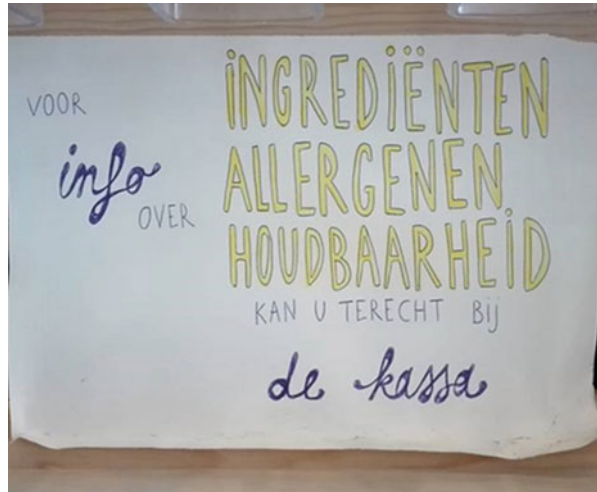 VOOR
info
OVER
INGREDIËNTEN
ALLERGENEN
HOUDBAARHEID
KAN U TERECHT Bij
de kassa